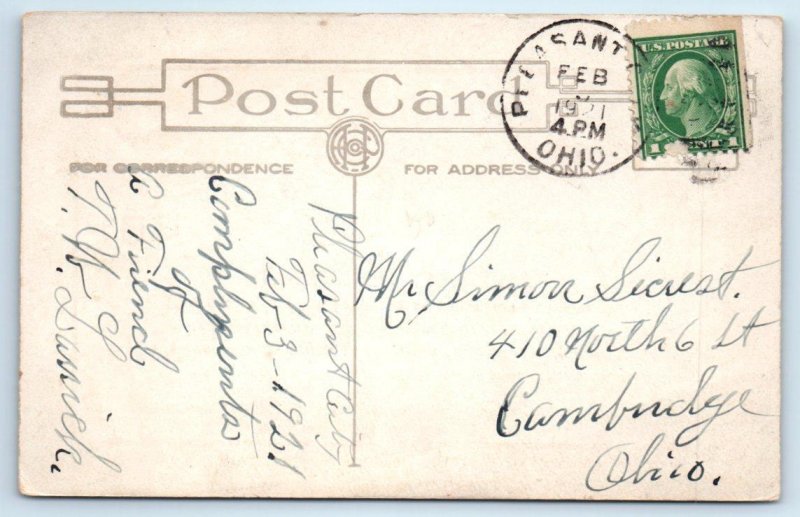 Post Card
FOR CORRESPONDENCE
FOR ADDRESS ONLY
PLEASANT
FEB
1921
4 PM
OHIO.
U.S. POSTAGE
1 1
Pleasant City
Feb-3-1921
Complyents
of
a Friend
T. W. S
Mr. Simon Secrest.
410 North 6 St
Cambridge
Ohio.